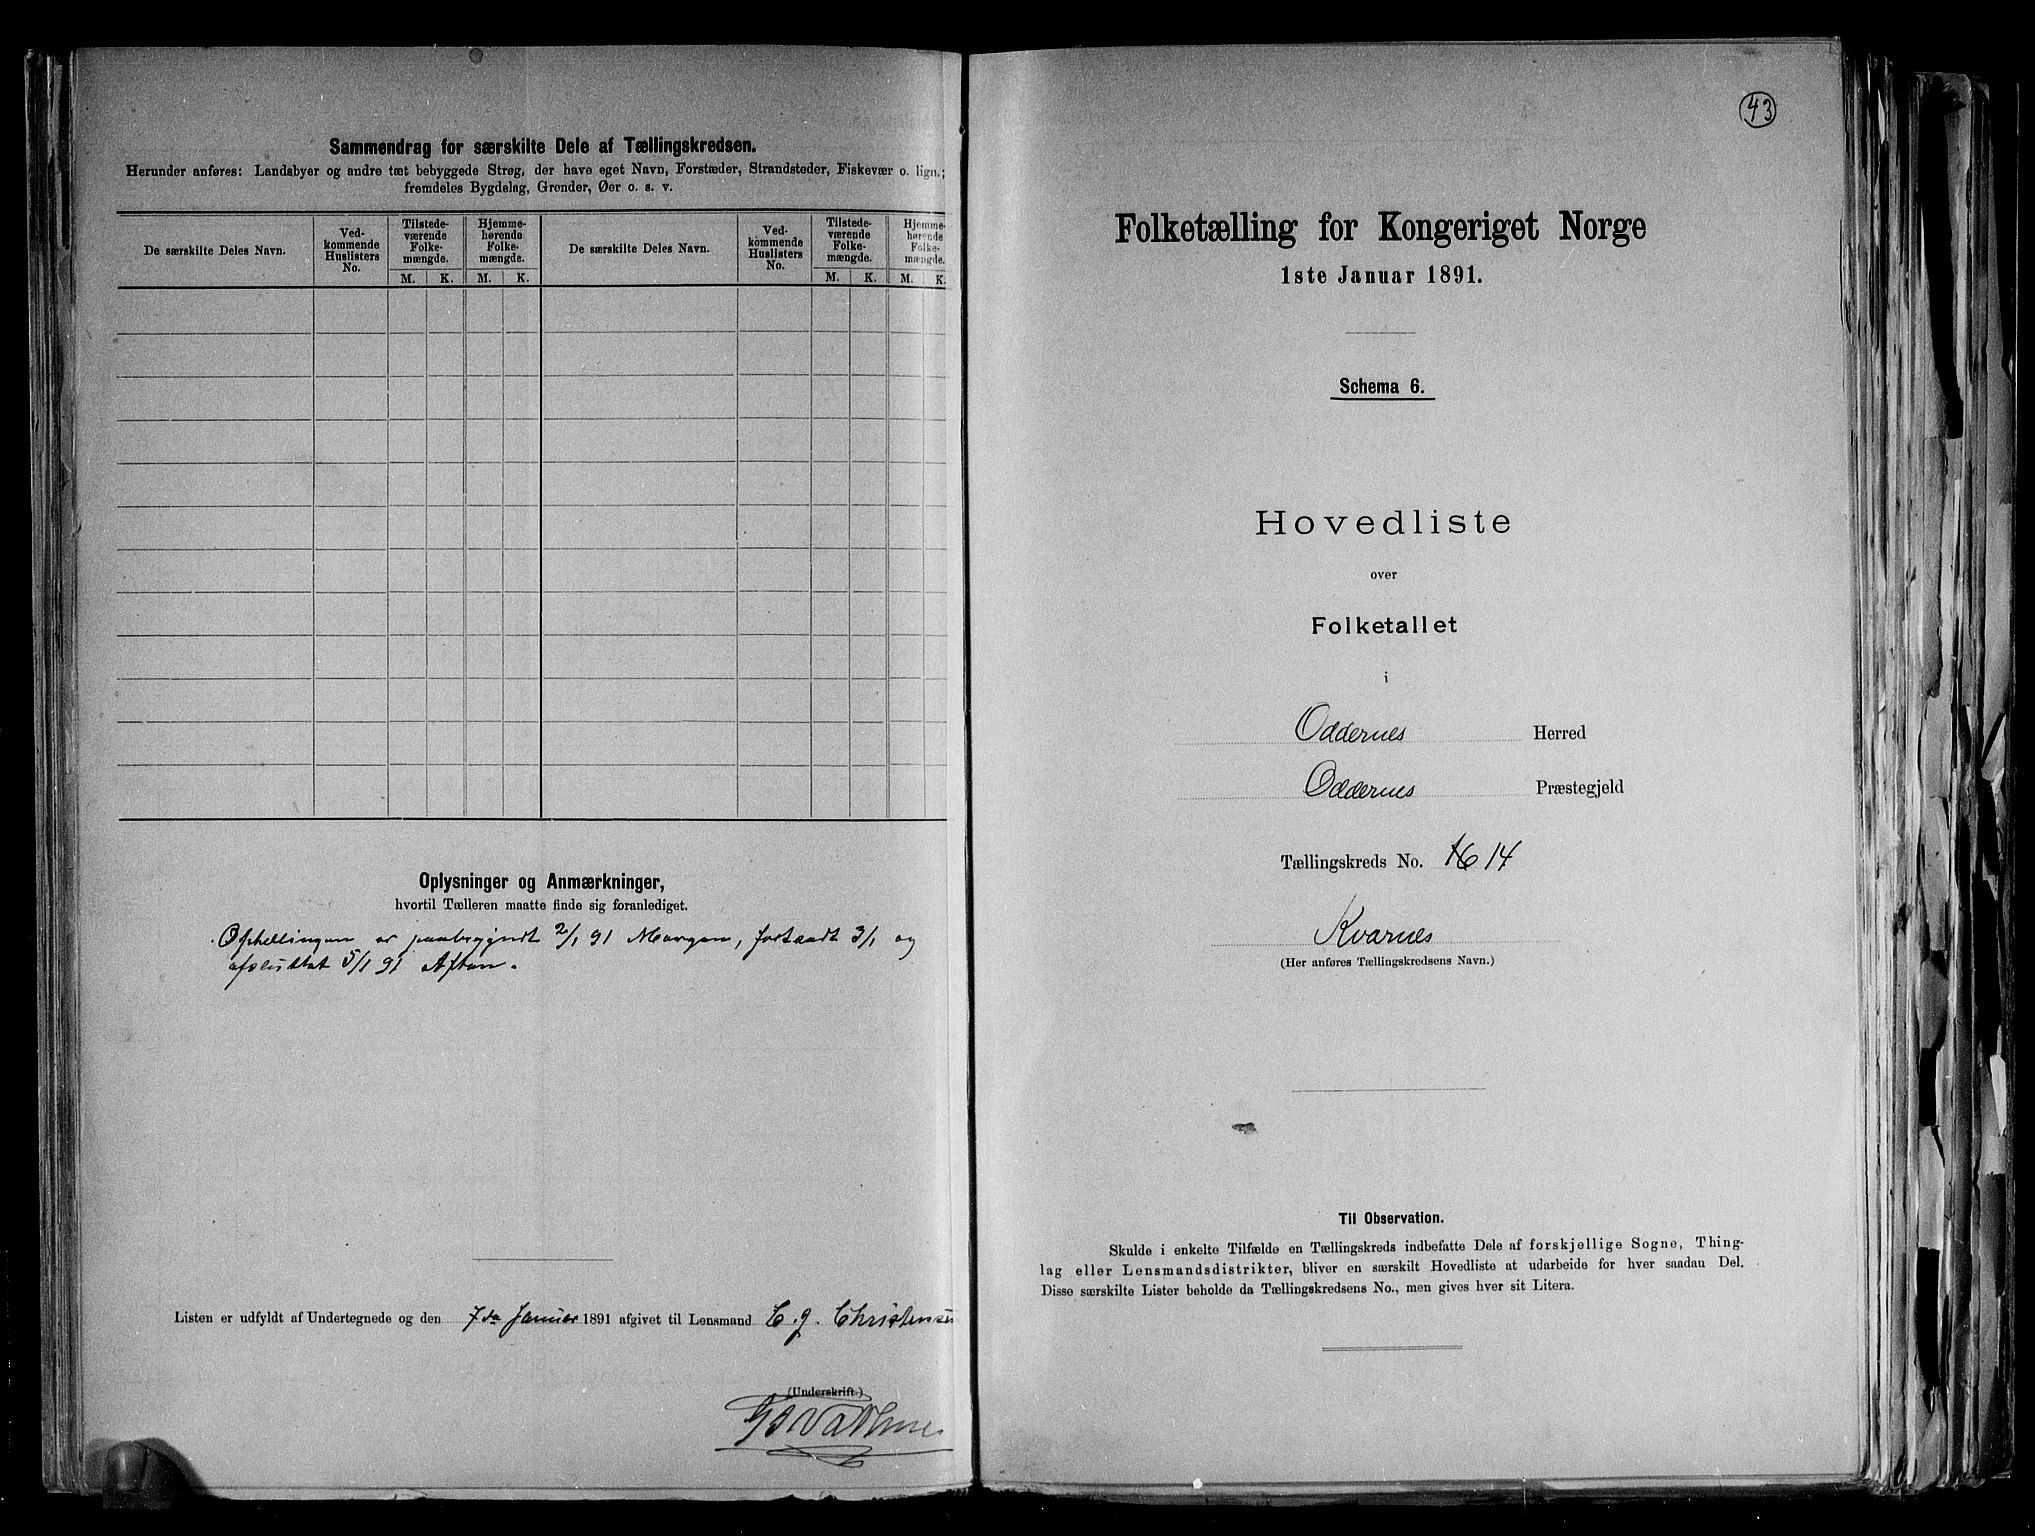 Sammendrag for særskilte Dele af Tællingskredsen.
Herunder anføres: Landsbyer og andre tæt bebyggede Strøg, der have eget Navn, Forstæder, Strandsteder, Fiskevær o. lign.;
fremdeles Bygdelag, Grender, Øer o. s. v.
De særskilte Deles Navn.
Ved-
kommende
Huslisters
No.
Tilstede-
værende
Folke-
mængde.
M. K.
Hjemme-
hørende
Folke-
mængde.
M. K.
De særskilte Deles Navn.
Ved-
kommende
Huslisters
No.
Tilstede-
værende
Folke-
mængde.
M. K.
Hjemme-
hørende
Folke-
mængde.
M. K.
Oplysninger og Anmærkninger,
hvortil Tælleren maatte finde sig foranlediget.
er paabegyndt 2/1 91 Morgen, fortsandt 3/1 og
afsluttet 5/1 91 Aften.
Listen er udfyldt af Undertegnede og den 7de Januar 1891 afgivet til Lensmand C. J. Christensen
(Underskrift.)
43
Folketælling for Kongeriget Norge
1ste Januar 1891.
Schema 6.
Hovedliste
over
Folketallet
i
Oddernes Herred
Oddernes Præstegjeld
Tællingskreds No. 16 14
Kvarnes
(Her anføres Tællingskredsens Navn.)
Til Observation.
Skulde i enkelte Tilfælde en Tællingskreds indbefatte Dele af forskjellige Sogne, Thing-
lag eller Lensmandsdistrikter, bliver en særskilt Hovedliste at udarbeide for hver saadan Del.
Disse særskilte Lister beholde da Tællingskredsens No., men gives hver sit Litera.